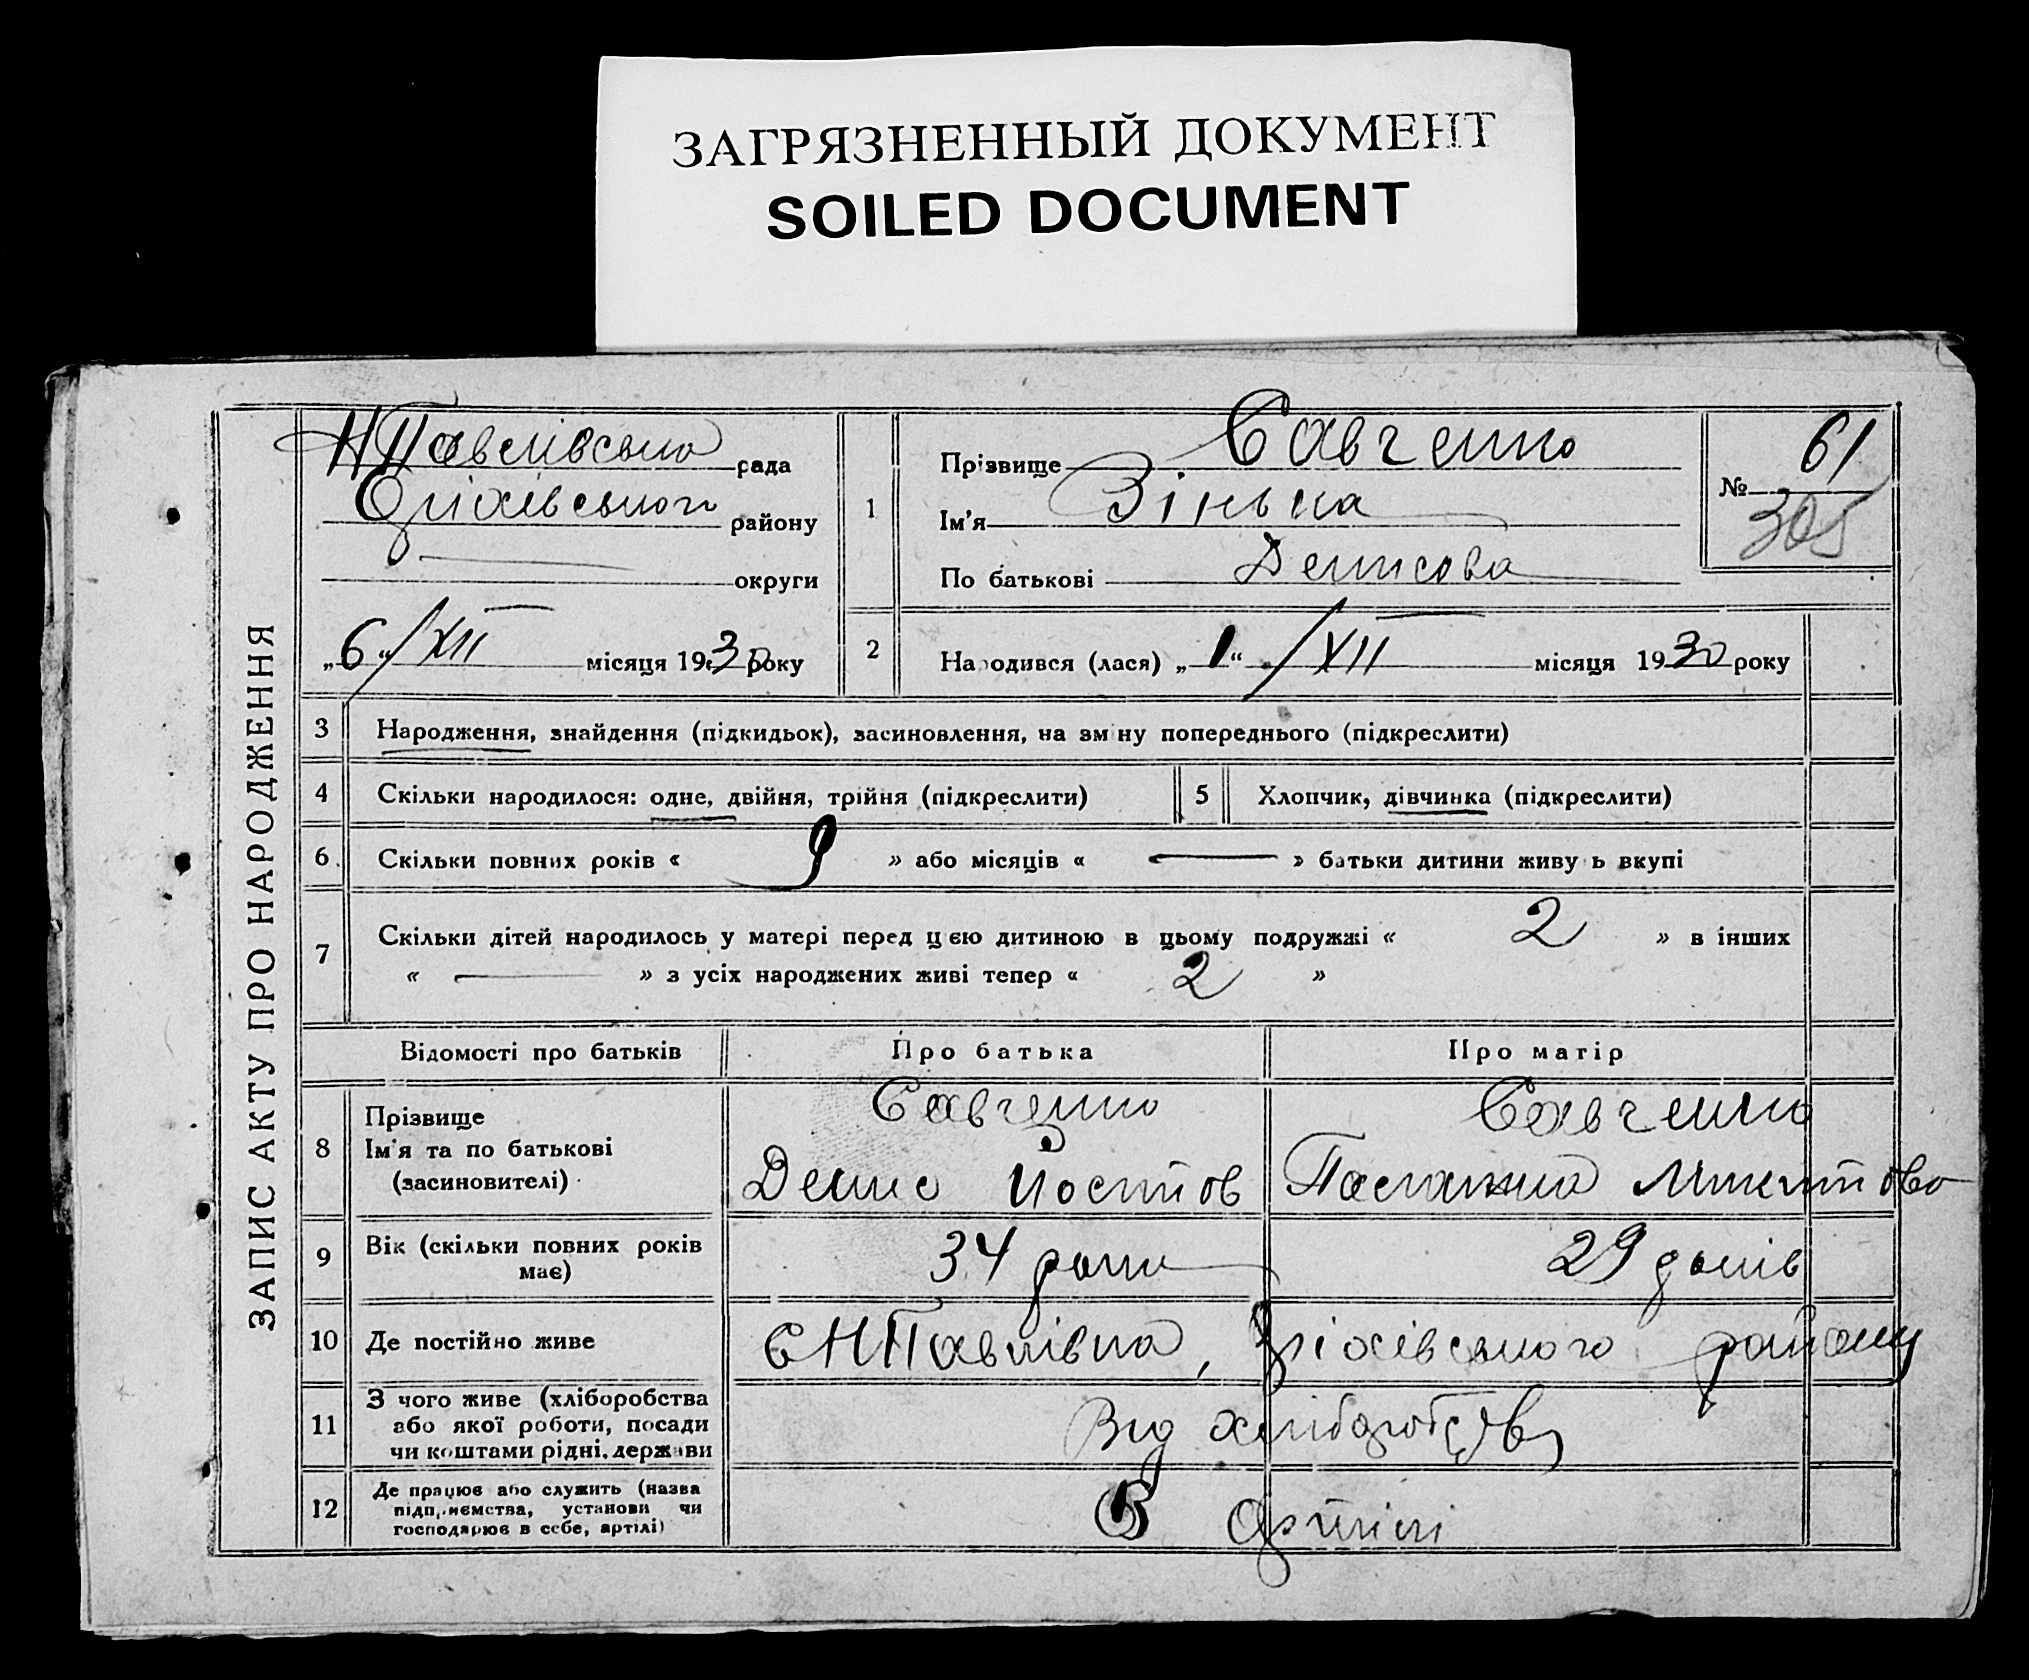 ЗАГРЯЗНЕННЫЙ ДОКУМЕНТ
SOILED DOCUMENT
ЗАПИС АКТУ ПРО НАРОДЖЕННЯ
НПавлівська рада
Оріхівського району
округи
„6“/XII місяця 1930 року
1
Прізвище Савченко
Ім'я Зінька
По батькові Денисова
№ 61
305
2
Народився (лася) „1“ /XII місяця 1930 року
3 Народження, знайдення (підкидьок), засиновлення, на зміну попереднього (підкреслити)
4 Скільки народилося: одне, двійня, трійня (підкреслити) 5 Хлопчик, дівчинка (підкреслити)
6 Скільки повних років « 9 » або місяців « — » батьки дитини живуть вкупі
7 Скільки дітей народилось у матері перед цією дитиною в цьому подружжі « 2 » в інших
« — » з усіх народжених живі тепер « 2 »
Відомості про батьків Про батька Про матір
8 Прізвище
Ім'я та по батькові
(засиновителі)
Савченко
Денис
Савченко
9 Вік (скільки повних років
має)
34 роки
29 років
10 Де постійно живе
с НПавлівка, Оріхівського району
11 З чого живе (хліборобства
або якої роботи, посади
чи коштами рідні, держави
Від хліборобства
12 Де працює або служить (назва
підприємства, установи чи
господарює в себе, артілі)
В артілі